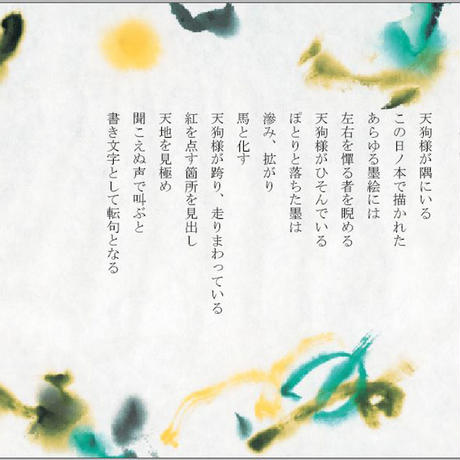 天狗様が隅にいる
この日ノ本で描かれた
あらゆる墨絵には
左右を憚る者を睨める
天狗様がひそんでいる
ぽとりと落ちた墨は
滲み、拡がり
馬と化す
天狗様が跨り、走りまわっている
紅を点す箇所を見出し
天地を見極め
聞こえぬ声で叫ぶと
書き文字として転句となる